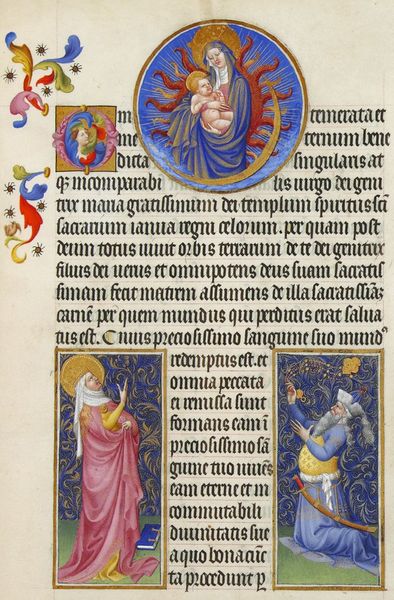 O in temerata et
in e ternum bene
dicta singularis at
q̄ incomparabi lis uirgo dei geni
trix maria gratissimum dei templum spiritus sc̄i
sacrarium ianua regni celorum. per quam post
deum totus uiuit orbis terrarum de te dei genitrix
filius dei uerus et omnipotens deus suam sacratis
simam fecit matrem assumens de illa sacratissimā
carnē per quem mundus qui perditus erat salua
tus est. Cuius preciosissimo sanguine suo mundꝰ
redemptus est. et
omnia peccata
ei remissa sunt
formans eam ī
preciosissimo sā
guine tuo
eam eterne et in
commutabili
diuinitatis sue
a quo bona cūc
ta procedunt p̱